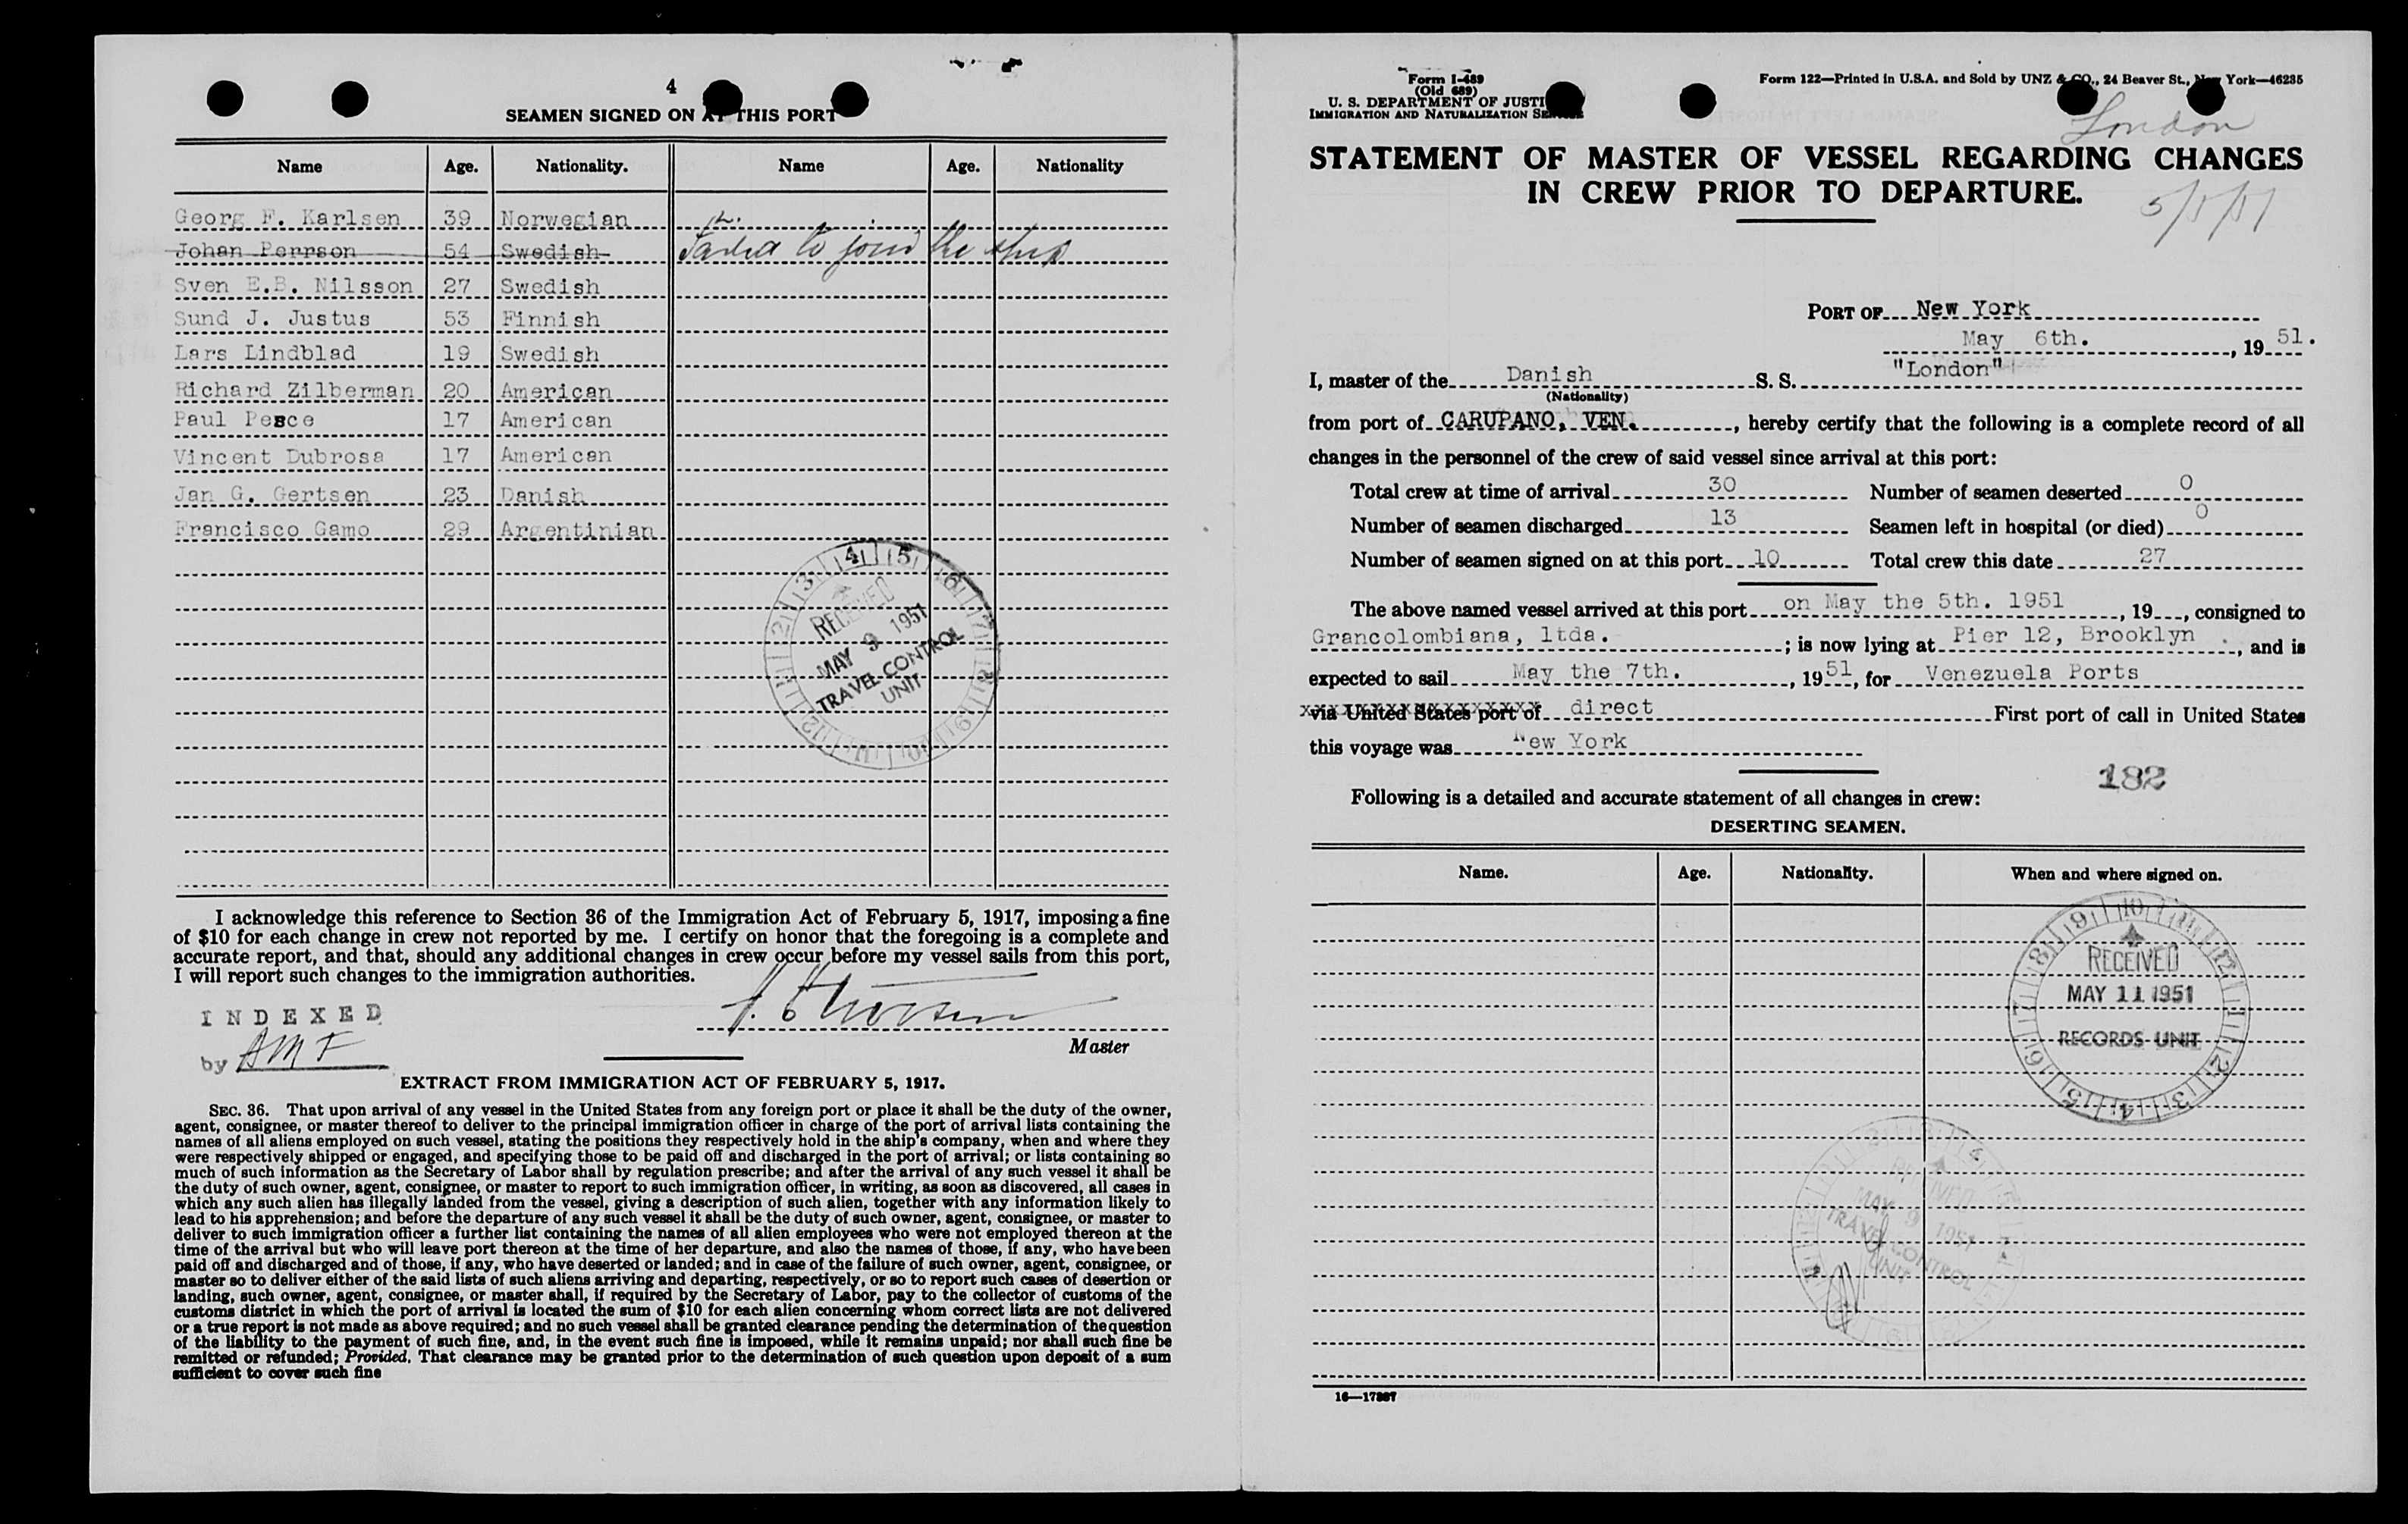 4
SEAMEN SIGNED ON AT THIS PORT
Name Age. Nationality. Name Age. Nationality
Georg F. Karlsen 39 Norwegian
Johan Perrson 54 Swedish Failed to join the ship
Sven E.B. Nilsson 27 Swedish
Sund J. Justus 53 Finnish
Lars Lindblad 19 Swedish
Richard Zilberman 20 American
Paul Pesce 17 American
Vincent Dubrosa 17 American
Jan G. Gertsen 23 Danish
Francisco Gamo 29 Argentinian
RECEIVED
MAY 9 1951
TRAVEL CONTROL
UNIT
I acknowledge this reference to Section 36 of the Immigration Act of February 5, 1917, imposing a fine
of $10 for each change in crew not reported by me. I certify on honor that the foregoing is a complete and
accurate report, and that, should any additional changes in crew occur before my vessel sails from this port,
I will report such changes to the immigration authorities.
INDEXED
by AMF
Master
EXTRACT FROM IMMIGRATION ACT OF FEBRUARY 5, 1917.
SEC. 36. That upon arrival of any vessel in the United States from any foreign port or place it shall be the duty of the owner,
agent, consignee, or master thereof to deliver to the principal immigration officer in charge of the port of arrival lists containing the
names of all aliens employed on such vessel, stating the positions they respectively hold in the ship's company, when and where they
were respectively shipped or engaged, and specifying those to be paid off and discharged in the port of arrival; or lists containing so
much of such information as the Secretary of Labor shall by regulation prescribe; and after the arrival of any such vessel it shall be
the duty of such owner, agent, consignee, or master to report to such immigration officer, in writing, as soon as discovered, all cases in
which any such alien has illegally landed from the vessel, giving a description of such alien, together with any information likely to
lead to his apprehension; and before the departure of any such vessel it shall be the duty of such owner, agent, consignee, or master to
deliver to such immigration officer a further list containing the names of all alien employees who were not employed thereon at the
time of the arrival but who will leave port thereon at the time of her departure, and also the names of those, if any, who have been
paid off and discharged and of those, if any, who have deserted or landed; and in case of the failure of such owner, agent, consignee, or
master so to deliver either of the said lists of such aliens arriving and departing, respectively, or so to report such cases of desertion or
landing, such owner, agent, consignee, or master shall, if required by the Secretary of Labor, pay to the collector of customs of the
customs district in which the port of arrival is located the sum of $10 for each alien concerning whom correct lists are not delivered
or a true report is not made as above required; and no such vessel shall be granted clearance pending the determination of the question
of the liability to the payment of such fine, and, in the event such fine is imposed, while it remains unpaid; nor shall such fine be
remitted or refunded; Provided, That clearance may be granted prior to the determination of such question upon deposit of a sum
sufficient to cover such fine
Form I-489
(Old 689)
U. S. DEPARTMENT OF JUSTI
IMMIGRATION AND NATURALIZATION SERVICE
Form 122—Printed in U.S.A. and Sold by UNZ & CO., 24 Beaver St., New York—46235
London
STATEMENT OF MASTER OF VESSEL REGARDING CHANGES
IN CREW PRIOR TO DEPARTURE.
PORT OF New York
May 6th. , 19 51.
I, master of the Danish S. S. "London"
(Nationality)
from port of CARUPANO, VEN. , hereby certify that the following is a complete record of all
changes in the personnel of the crew of said vessel since arrival at this port:
Total crew at time of arrival 30 Number of seamen deserted 0
Number of seamen discharged 13 Seamen left in hospital (or died) 0
Number of seamen signed on at this port 10 Total crew this date 27
The above named vessel arrived at this port on May the 5th. 1951 , 19 , consigned to
Grancolombiana, ltda. ; is now lying at Pier 12, Brooklyn . , and is
expected to sail May the 7th. , 19 51, for Venezuela Ports
via United States port of direct First port of call in United States
this voyage was New York
182
Following is a detailed and accurate statement of all changes in crew:
DESERTING SEAMEN.
Name. Age. Nationality. When and where signed on.
RECEIVED
MAY 11 1951
RECORDS UNIT
RECEIVED
MAY 9 1951
TRAVEL CONTROL
UNIT
16—17887